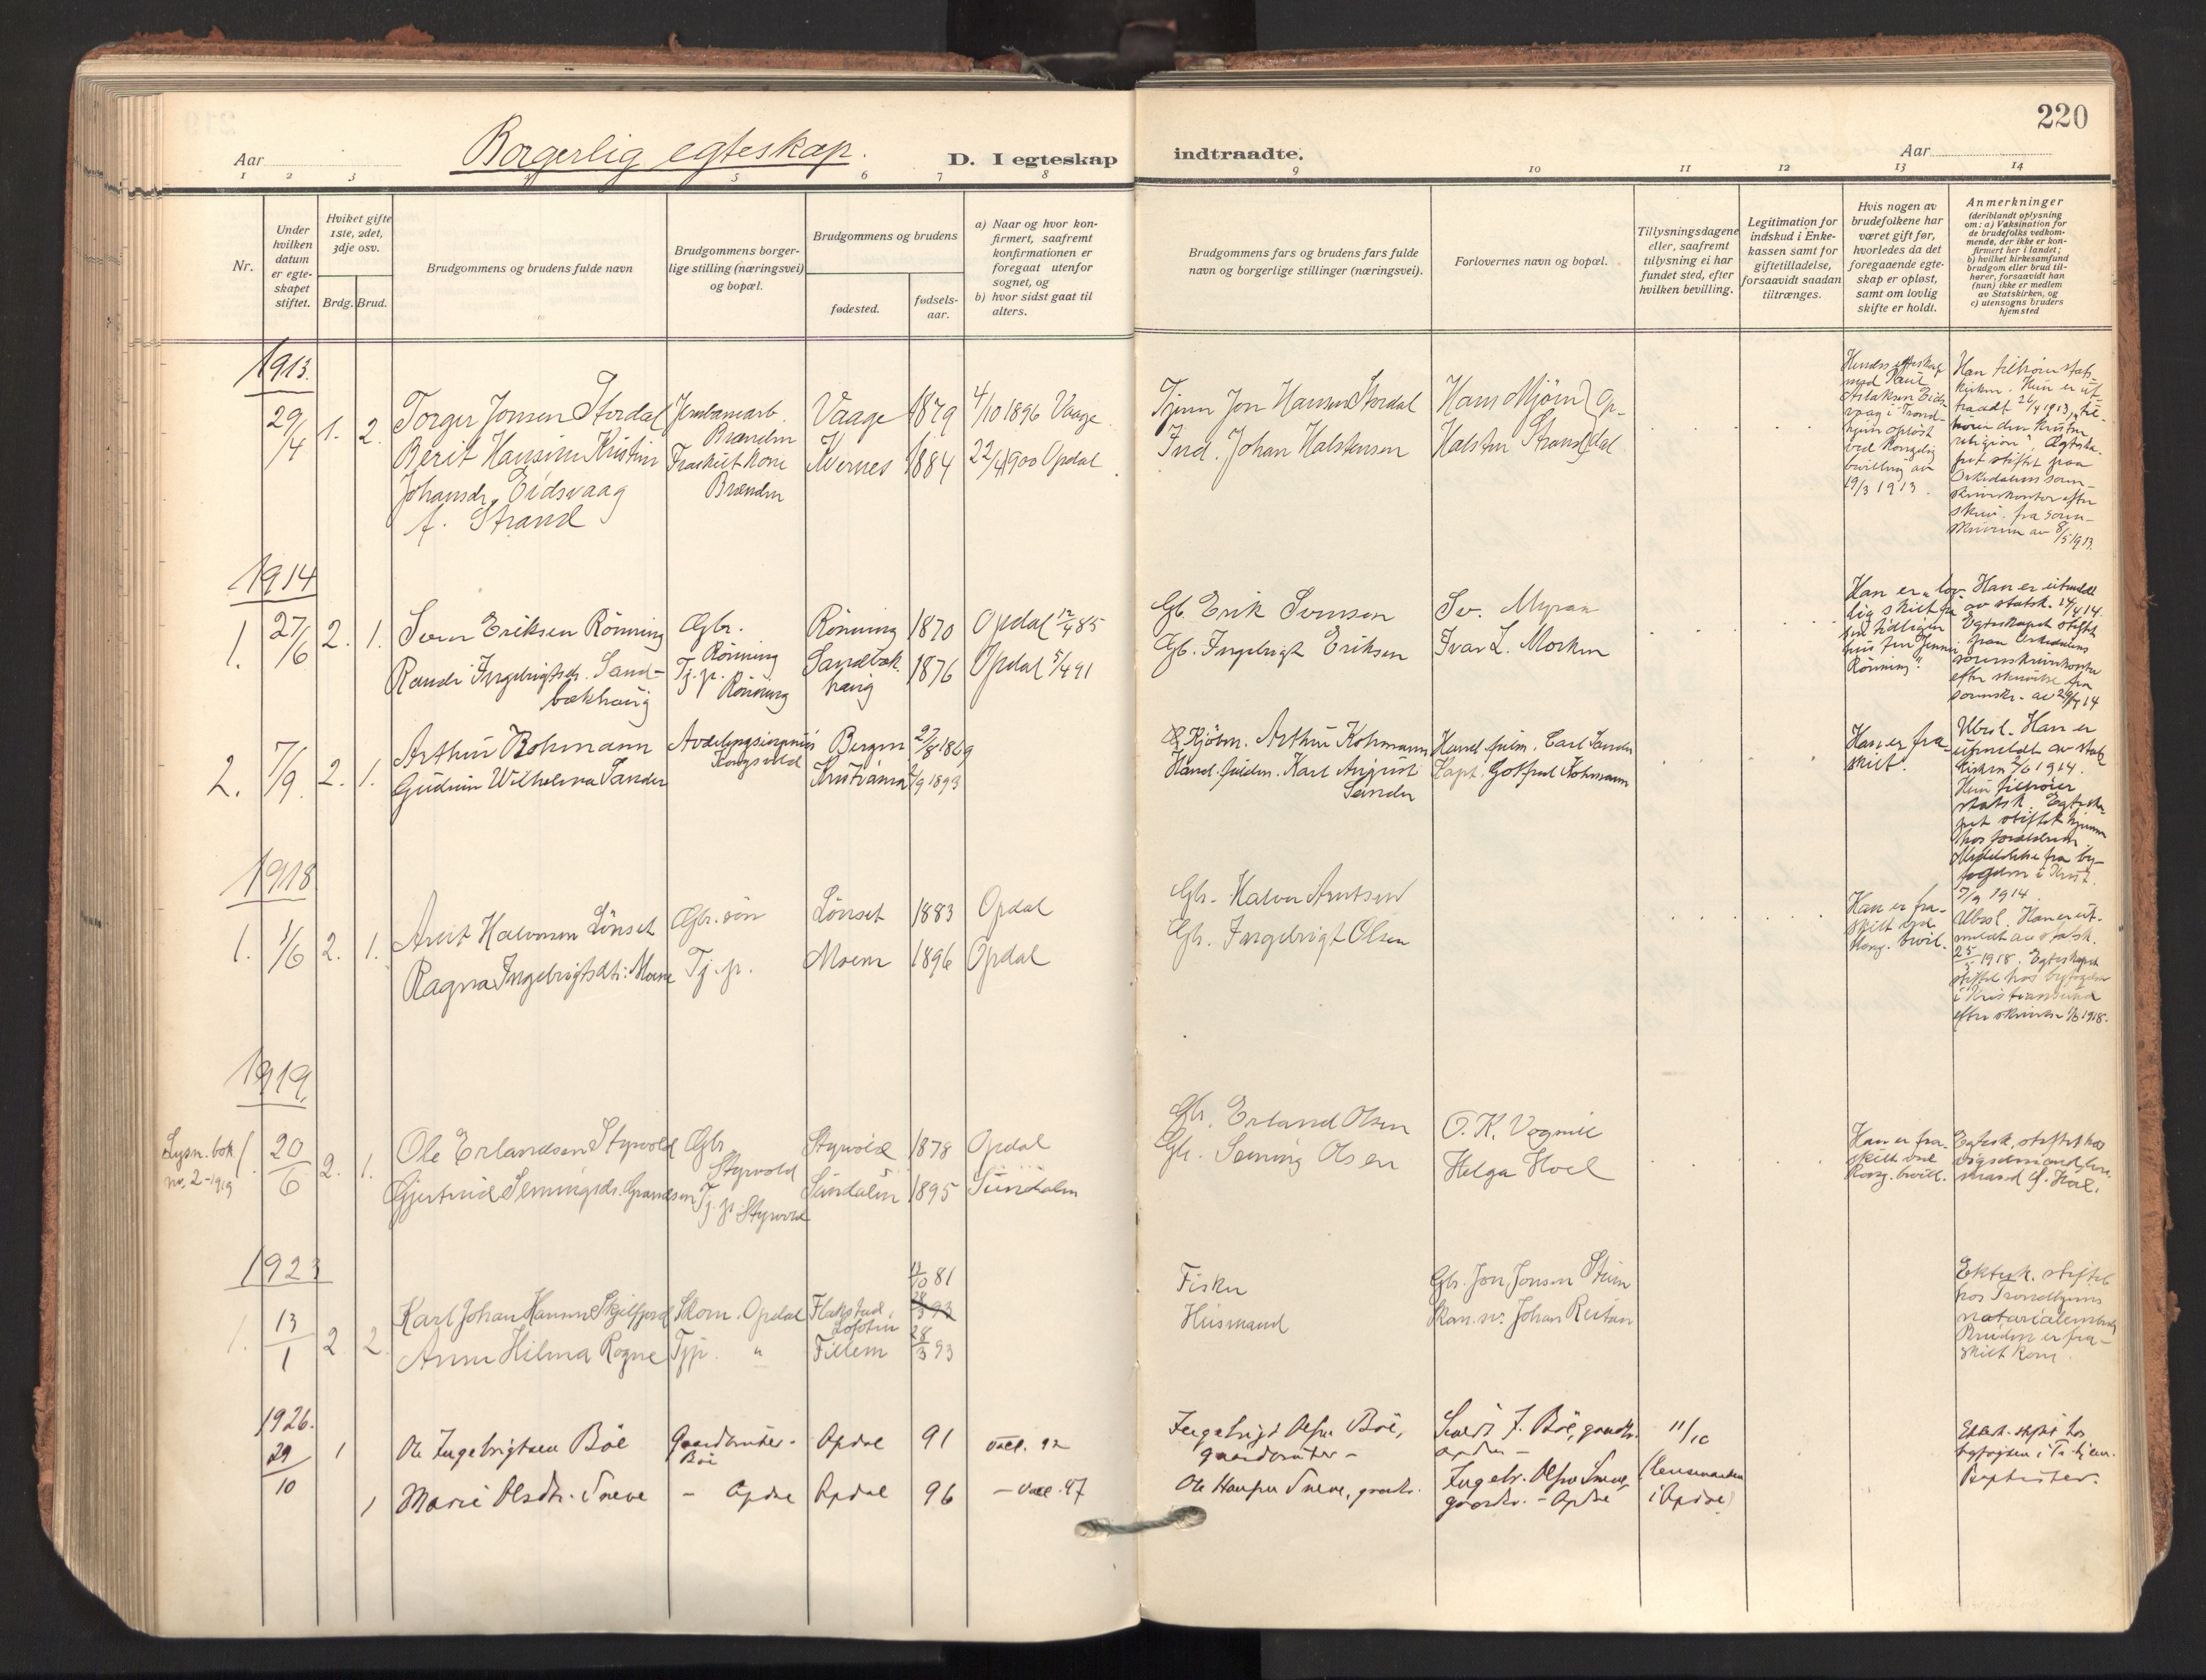 220
Aar
Borgerlig egteskap.
D. I egteskap
indtraadte.
Aar
1 2 3 5 6 7 8 9 10 11 12 13 14
Nr.
Under hvilken datum er egteskapet stiftet.
Hvilket gifte 1ste, 2det, 3dje osv.
Brdg. Brud.
Brudgommens og brudens fulde navn
Brudgommens borgerlige stilling (næringsvei) og bopæl.
Brudgommens og brudens
fødested.
fødsels-aar.
a) Naar og hvor konfirmert, saafremt konfirmationen er foregaat utenfor sognet, og
b) hvor sidst gaat til alters.
Brudgommens fars og brudens fars fulde navn og borgerlige stillinger (næringsvei).
Forlovernes navn og bopæl.
Tillysningsdagene eller, saafremt tillysning ei har fundet sted, efter hvilken bevilling.
Legitimation for indskud i Enkekassen samt for giftetilladelse, forsaavidt saadan tiltrænges.
Hvis nogen av brudefolkene har været gift før, hvorledes da det foregaaende egteskap er opløst, samt om lovlig skifte er holdt.
Anmerkninger
(deriblandt oplysning om: a) Vaksination for de brudefolks vedkommende, der ikke er konfirmert her i landet; b) hvilket kirkesamfund brudgom eller brud tilhører, forsaavidt han (hun) ikke er medlem av Statskirken, og c) utensogns bruders hjemsted
1913.
29/4 1. 2. Torger Jonsen Stordal Jernbanearb. Brænden Vaage 1879 4/10 1896 Vaage
Berit Hansine Kristine Fraskilt kone Kvernes 1884 22/4 1900 Opdal
Johansdr. Eidsvaag Brænden
f. Strand
Tjener Jon Hansen Stordal Hans Mjøen Op-
Ind. Johan Halstensen Halsten Strand dal
Hendes egteskap
med Paul
Aslaksen Eids-
vaag i Trond-
hjem opløst
ved Kongelig
bevilling av
19/3 1913.
Han tilhører stats-
kirken. Hun er ut-
traadt 26/4 1913, til-
hører den Kristne
religion". Egteska-
pet stiftet paa
Orkedalens soren-
skriverkontor efter
skriv. fra soren-
skriveren av 8/5 1913.
1914
1. 27/6 2. 1. Sven Eriksen Rönning Gbr. Rönning Rönning 1870 Opdal 12/4 85
Randi Ingebrigtsdr. Sand- Tj.p. Sandbæk- 1876 Opdal 5/4 91
bækhaug Rönning haug
Gb. Erik Svensen Sv. Myran
Gb. Ingebrigt Eriksen Ivar L. Morken
Han er "lov-
lig skilt fra
sin tidligere
hustru Jenny
Rønning".
Han er utmeldt
av statsk. 14/4 14.
Egteskapet stiftet
paa Orkedalens
sorenskriverkontor
efter skrivelse fra
sorenskr. av 29/7 14
2. 7/9 2. 1. Arthur Kohmann Avdelingsingeniør Bergen 27/8 1869
Gudrun Wilhelma Sander Kongsvold Kristiania 2/9 1893
Kjöbm. Arthur Kohmann Handl.fuldm. Carl Sander
Hand.fuldm. Karl August Kapt. Gotfred Kohmann
Sander
Han er fra-
skilt.
Ubesl. Han er
utmeldt av stats-
kirken 2/6 1914.
Hun tilhører
statsk. Egteska-
pet stiftet hjemme
hos forældrene.
Meddelelse fra by-
fogden i Krist.
7/9 1914.
1918
1. 1/6 2. 1. Arnt Halvorsen Lönset Gbr. sön Lönset 1883 Opdal
Ragna Ingebrigtsdt. Moene Tj.p. Moene 1896 Opdal
Gbr. Halvor Arntsen
Gbr. Ingebrigt Olsen
Han er fra-
skilt ved
Kong. bevil.
Ubesl. Han er ut-
meldt av statsk.
25/5 1918. Egteskapet
stiftet hos byfogden
i Kristiansund
efter skrivelse 1/6 1918.
1919.
Lysn. bok
nr. 2-1919
1. 20/6 2. 1. Ole Erlandsen Styrvold Gbr. Styrvold Styrvold 1878 Opdal
Gjertrud Semingsdr. Grandsen Tj.p. Styrvold Sundalen 1895 Sundalen
Gbr. Erland Olsen O. K. Vognill
Gbr. Seming Olsen Helga Hoel
Han er fra-
skilt ved
Kong. bevill.
Egtesk. stiftet hos
1923
1. 13/1 2. 2. Karl Johan Hansen Skjelfjord Skom. Opdal Flakstad, Lofoten 13/10 81
28/3 93
Anne Hilma Rogne Tjp. " Fillem 28/3 93
Fisker Gbr. Jon Jonsen Stuen
Husmand Johan Reitan
Ektesk. stiftet
hos Trondhjems
notarialembede
Bruden er fra-
skilt kone.
1926.
29/10 1 Ole Ingebrigtsen Böe Gaardbruker - Böe Opdal 91 vacc. 92
1 Marie Olsdtr. Sneve - Opdal Opdal 96 - vacc. 97
Ingebrigt Olsen Böe, Sivert I. Böe, gaardbr. 11/10
gaardbruker - Opdal -
Ole Hansen Sneve, gaardbr. Ingebr. Olsen Sneve, (lensmanden
gaardbr. - Opdal i Opdal)
Ektesk. stiftet hos
byfogden i Tr.hjem.
Baptister.